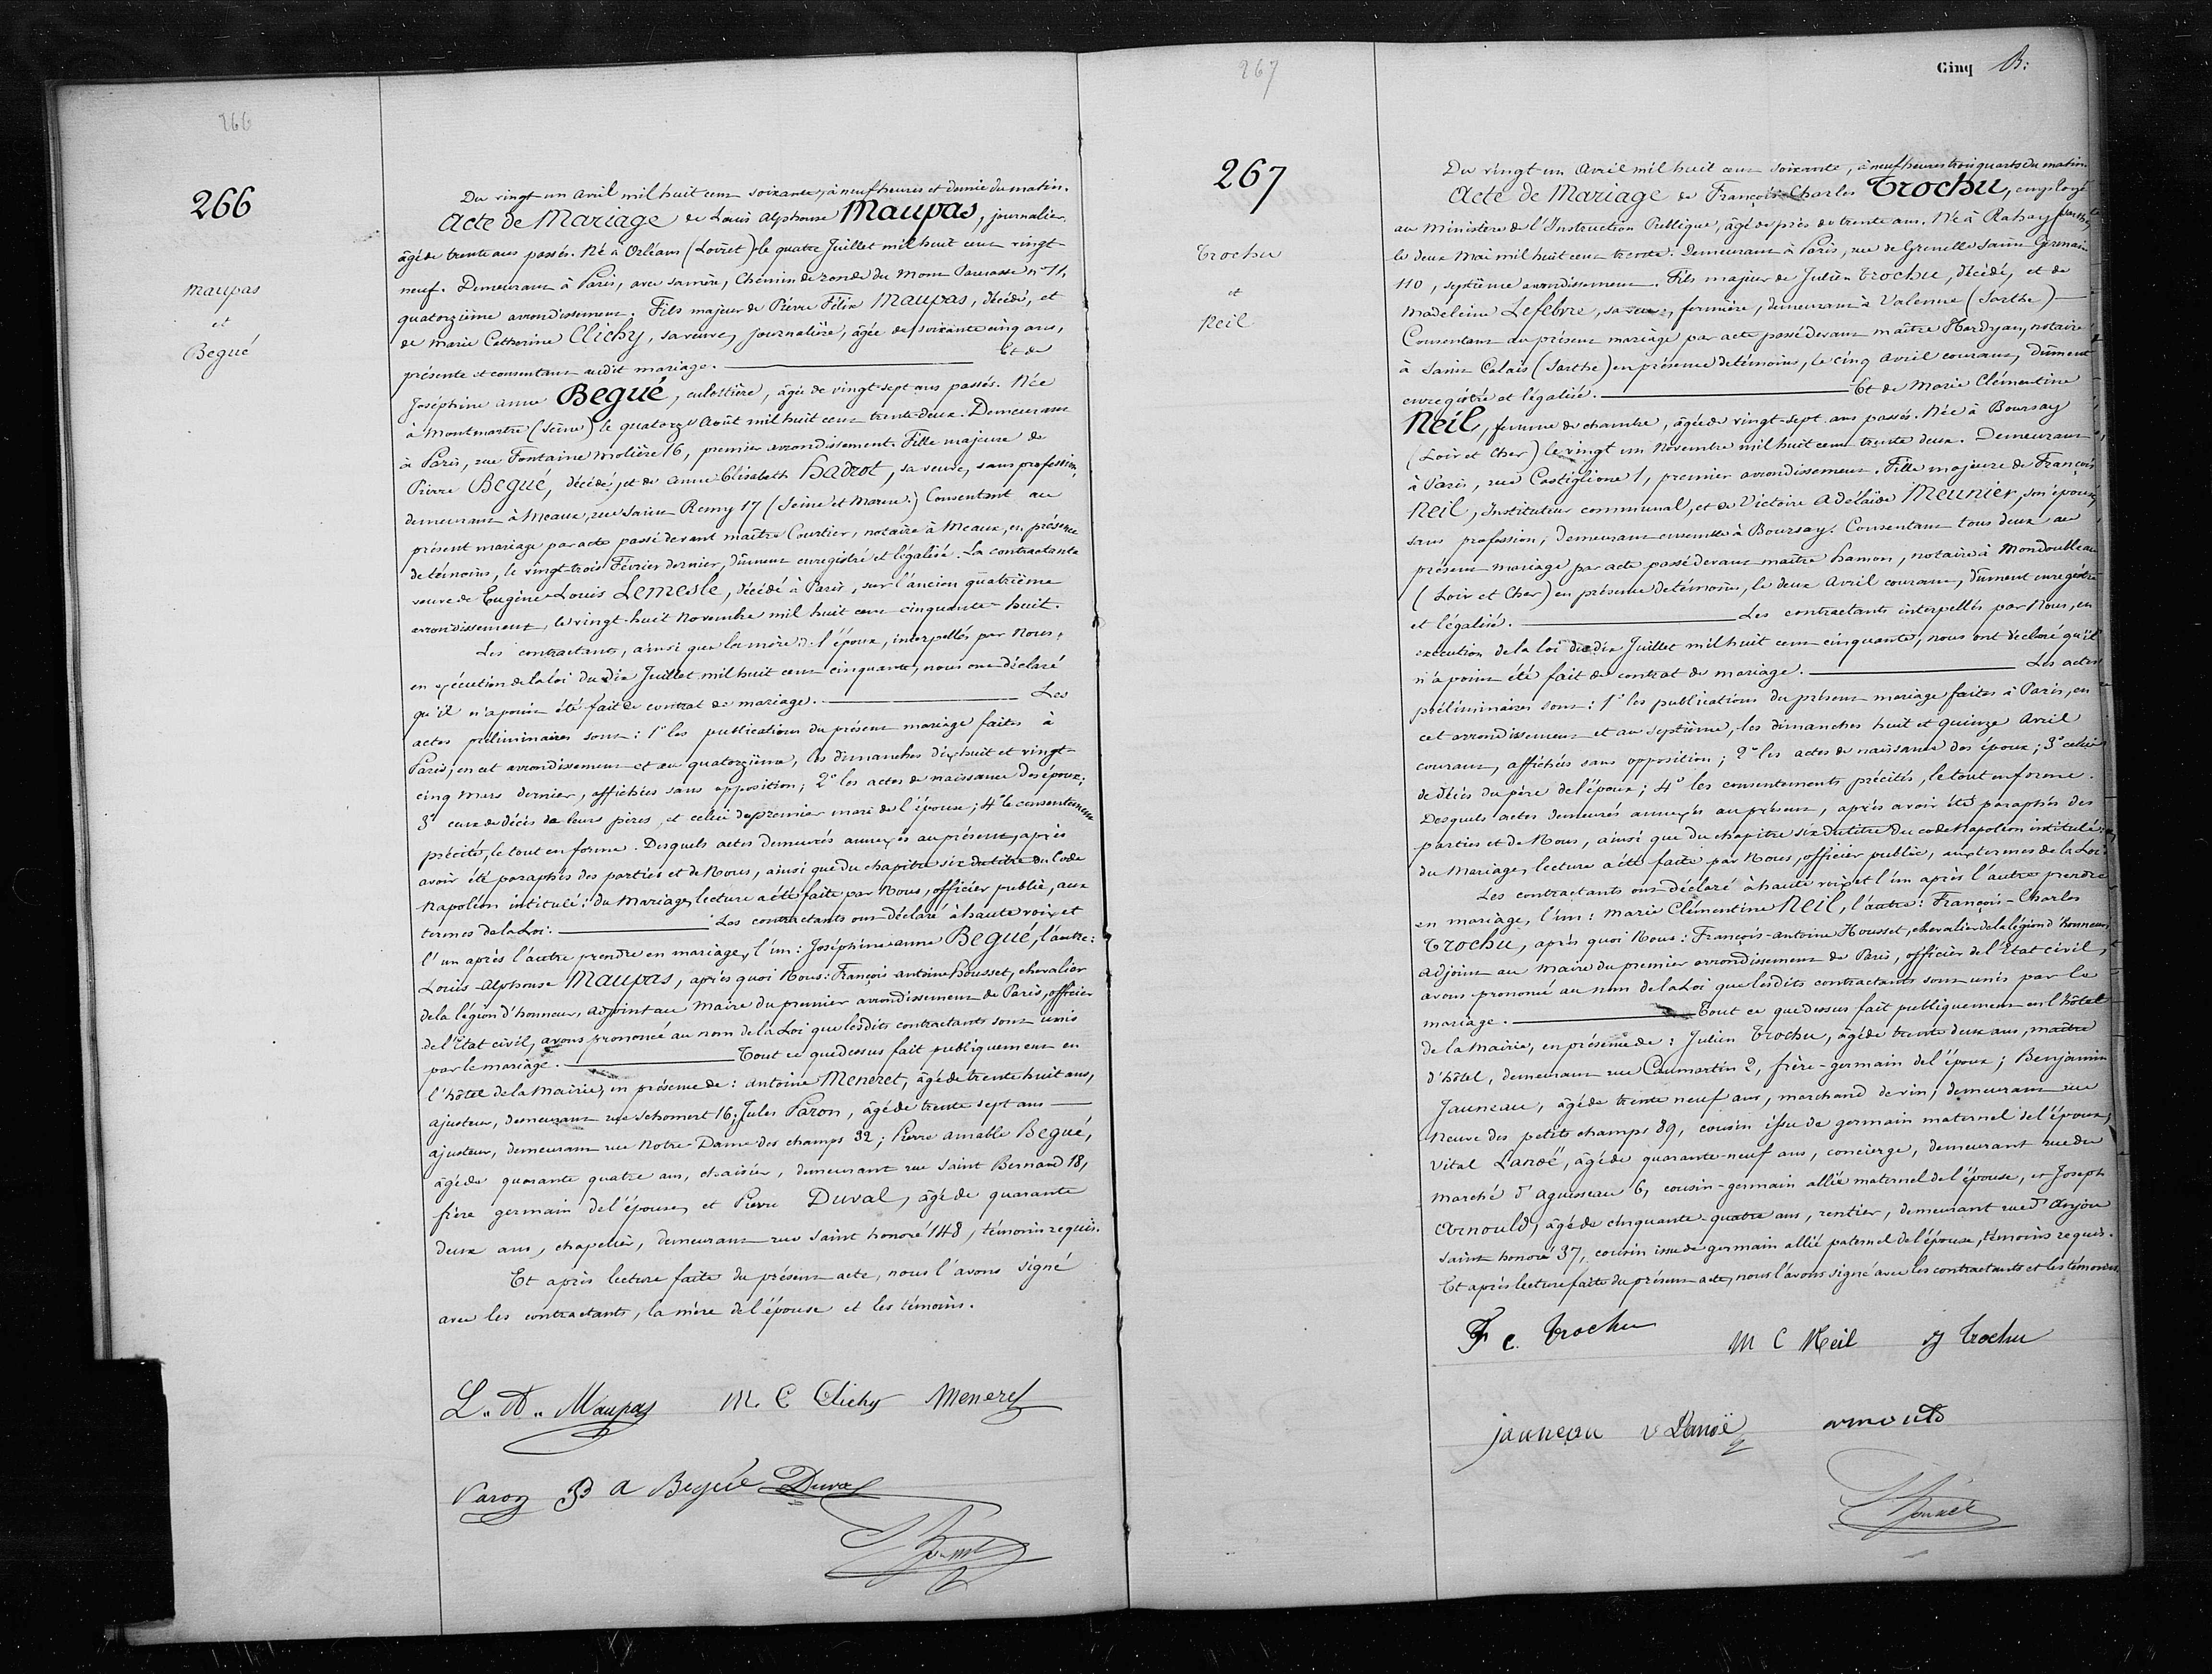 266
266
Maupas
et
Begué
Du vingt un avril mil huit cent soixante, à neuf heures et demie du matin.
Acte de Mariage de Louis Alphonse Maupas, journalier,
âgé de trente ans passés. Né à Orléans (Loiret) le quatre Juillet mil huit cent vingt-
neuf. Demeurant à Paris, avec sa mère, Chemin de ronde du Mont Parnasse n° 11,
quatorzième arrondissement. Fils majeur de Pierre Félix Maupas, décédé, et
de Marie Catherine Clichy, sa veuve, journalière, âgée de soixante cinq ans,
présente et consentant audit mariage. Et de
Joséphine Anne Begué, culottière, âgée de vingt-sept ans passés. Née
à Montmartre (Seine) le quatorze Août mil huit cent trente-deux. Demeurant
à Paris, rue Fontaine Molière 16, premier arrondissement. Fille majeure de
Pierre Begué, décédé, et de Anne Elisabeth Hadrot, sa veuve, sans profession,
demeurant à Meaux, rue Saint Remy 17 (Seine et Marne.) Consentant au
présent mariage par acte passé devant maître Courtier, notaire à Meaux, en présence
de témoins, le vingt-trois Février dernier, dûment enregistré et légalisé. La contractante
veuve de Eugène Louis Lemesle, décédé à Paris, sur l'ancien quatrième
arrondissement, le vingt-huit Novembre mil huit cent cinquante-huit.
Les contractants, ainsi que la mère de l'époux, interpellés par Nous,
en exécution de la loi du dix Juillet mil huit cent cinquante, nous ont déclaré
qu'il n'a point été fait de contrat de mariage. Les
actes préliminaires sont: 1° les publications du présent mariage faites à
Paris, en cet arrondissement et au quatorzième, les dimanches dix-huit et vingt-
cinq Mars dernier, affichées sans opposition; 2° les actes de naissance des époux;
3° ceux de décès de leurs pères, et celui du premier mari de l'épouse; 4° le consentement
précité, le tout en forme. Desquels actes demeurés annexés au présent, après
avoir été paraphés des parties et de Nous, ainsi que du chapitre six du titre du Code
Napoléon intitulé: du Mariage, lecture a été faite par Nous, officier public, aux
termes de la Loi. Les contractants ont déclaré à haute voix et
l'un après l'autre prendre en mariage, l'un: Joséphine Anne Begué, l'autre:
Louis-Alphonse Maupas, après quoi Nous: François Antoine Housset, chevalier
de la légion d'honneur, adjoint au Maire du premier arrondissement de Paris, officier
de l'Etat civil, avons prononcé au nom de la Loi que lesdits contractants sont unis
par le mariage. Tout ce que dessus fait publiquement en
l'hôtel de la Mairie, en présence de: Antoine Meneret, âgé de trente huit ans,
ajusteur, demeurant rue Schomert 16; Jules Paron, âgé de trente sept ans
ajusteur, demeurant rue Notre-Dame des champs 32; Pierre Amable Begué,
âgé de quarante quatre ans, chaisier, demeurant rue Saint Bernard 18,
frère germain de l'épouse, et Pierre Duval, âgé de quarante
deux ans, chapelier, demeurant rue Saint honoré 148, témoins requis.
Et après lecture faite du présent acte, nous l'avons signé
avec les contractants, la mère de l'épouse et les témoins.
L. A. Maupas M. C Clichy Meneret
Paron P A Begué Duval
267
267
Trochu
et
Neil
Cinq B:
Du vingt un Avril mil huit cent soixante, à neuf heures trois quarts du matin.
Acte de Mariage de François-Charles Trochu, employé
au Ministère de l'Instruction Publique, âgé de près de trente ans. Né à Rahay (Sarthe)
le deux Mai mil huit cent trente. Demeurant à Paris, rue de Grenelle Saint Germain
110, septième arrondissement. Fils majeur de Julien Trochu, décédé, et de
Madeleine Lefebvre, sa veuve, fermière, demeurant à Valenne (Sarthe)
Consentant au présent mariage par acte passé devant maître Hardyau, notaire
à Saint Calais (Sarthe) en présence de témoins, le cinq Avril courant, dûment
enregistré et légalisé. Et de Marie Clémentine
Neil, femme de chambre, âgée de vingt-sept ans passés. Née à Boursay
(Loir et Cher) le vingt un Novembre mil huit cent trente deux. Demeurant
à Paris, rue Castiglione 1, premier arrondissement. Fille majeure de François
Neil, Instituteur communal, et de Victoire Adélaïde Meunier, son épouse,
sans profession, demeurant ensemble à Boursay. Consentant tous deux au
présent mariage par acte passé devant maître hamon, notaire à Mondoubleau
(Loir et Cher) en présence de témoins, le deux Avril courant, dûment enregistré
et légalisé. Les contractants interpellés par Nous, en
exécution de la loi du dix Juillet mil huit cent cinquante, nous ont déclaré qu'il
n'a point été fait de contrat de mariage. Les actes
préliminaires sont: 1° les publications du présent mariage faites à Paris, en
cet arrondissement et au septième, les dimanches huit et quinze Avril
courant, affichées sans opposition; 2° les actes de naissance des époux; 3° celui
de décès du père de l'époux; 4° les consentements précités, le tout en forme.
Desquels actes demeurés annexés au présent, après avoir été paraphés des
parties et de Nous, ainsi que du chapitre six du titre du code Napoléon intitulé:
du Mariage, lecture a été faite par Nous, officier public, aux termes de la Loi.
Les contractants ont déclaré à haute voix et l'un après l'autre prendre
en mariage, l'un: Marie Clémentine Neil, l'autre: François-Charles
Trochu, après quoi Nous: François-Antoine Housset, chevalier de la légion d'honneur,
adjoint au Maire du premier arrondissement de Paris, officier de l'Etat civil,
avons prononcé au nom de la Loi que lesdits contractants sont unis par le
mariage. Tout ce que dessus fait publiquement en l'hôtel
de la Mairie, en présence de: Julien Trochu, âgé de trente deux ans, maître
d'hôtel, demeurant rue Caumartin 2, frère-germain de l'époux; Benjamin
Jauneau, âgé de trente neuf ans, marchand de vin, demeurant rue
Neuve des petits champs 89, cousin issu de germain maternel de l'époux;
Vital Lanoë, âgé de quarante-neuf ans, concierge, demeurant rue du
Marché d'Aguesseau 6, cousin-germain allié maternel de l'épouse, et Joseph
Arnould, âgé de cinquante-quatre ans, rentier, demeurant rue d'Anjou
Saint honoré 37, cousin issu de germain allié paternel de l'épouse, témoins requis.
Et après lecture faite du présent acte, nous l'avons signé avec les contractants et les témoins.
F C. Trochu M C Neil J Trochu
jauneau V Lanoë arnould
Housset